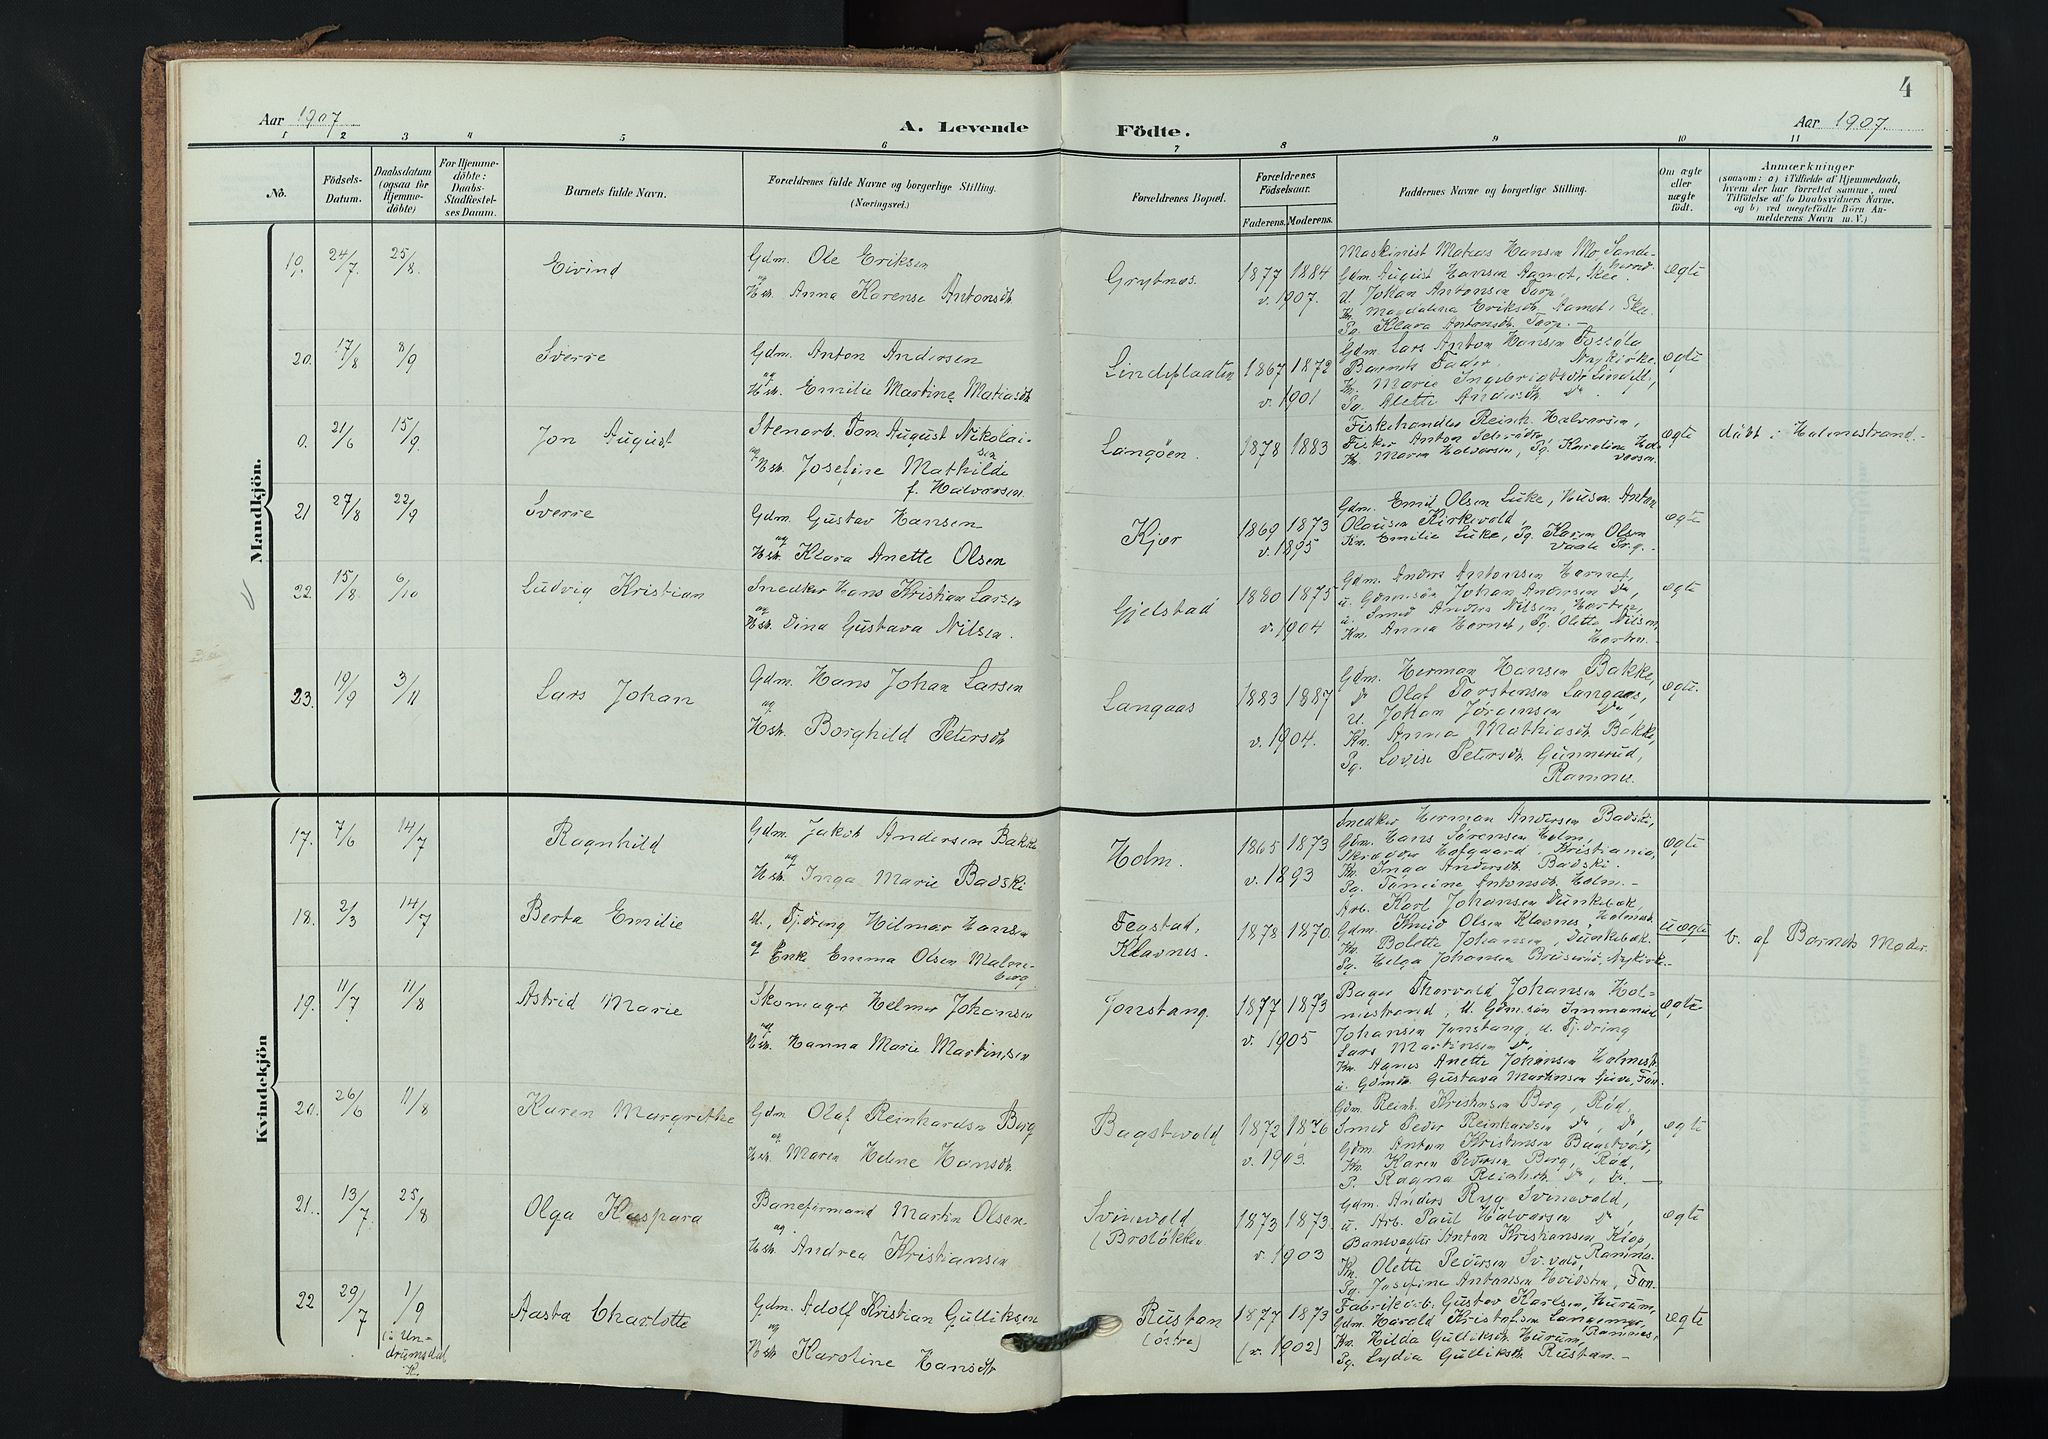 4
Aar 1907
A. Levende Födte.
Aar 1907.
1 2 3 4 5 6 7 8 9 10 11
No.
Födsels-Datum.
Daabsdatum (ogsaa for Hjemmedöbte)
For Hjemmedöbte: Daabs-Stadfæstelses Datum.
Barnets fulde Navn.
Forældrenes fulde Navne og borgerlige Stilling. (Næringsvei.)
Forældrenes Bopæl.
Forældrenes Födselsaar.
Faderens. Moderens.
Faddernes Navne og borgerlige Stilling.
Om ægte eller uægte födt.
Anmærkninger
(saasom: a) i Tilfælde af Hjemmedaab, hvem der har forrettet samme, med Tilföielse af to Daabsvidners Navne, og b) ved uægtefödte Börn Anmelderens Navn m. V.)
Mandkjön.
19. 24/7. 25/8. Eivind
Gdm. Ole Eriksen
og Hst. Anna Karense Antonsdt.
Grytnes. 1877 1884
v. 1907.
Maskinist Matias Hansen Mo, Sandeherred.
Gdm. August Hansen Aamot, Skee
U. Johan Antonsen Torp,
Kn. Magdalena Eriksdt. Aamot, Skee.
Pg. Klara Antonsdt. Torp. –
ægte
20. 17/8 8/9 Sverre
Gdm. Anton Andersen
og Hst. Emilie Martine Matiasdt.
Lindeplaaten 1867 1872
v. 1901
Gdm. Lars Anton Hansen
Barnets Fader Nykirke.
Kn. Marie Ingebrigtsdt.
Pg. Alette Andersdt. Do
ægte
0. 21/6 15/9. Jon August
Stenarb. Tom August Nikolaisen
og Hst. Josefine Mathilde
f. Halvorsen.
Langöen. 1878 1883
Fiskehandler Reinh. Halvorsen,
Fisker Anton
Kn. Maren Halvorsen, Pg. Karoline Halvorsen
ægte
döbt i Holmestrand. –
21 27/8 22/9 Sverre
Gdm. Gustav Hansen
og Hst. Klara Anette Olsen
Kjær 1869 1873
v. 1895
Gdm. Emil Olsen Luke, Husm. Anton
Olausen Kirkevold,
Kn. Emilie Luke, Pg. Karen Olsen
Vaale Prg. –
ægte
22. 15/8 6/10 Ludvig Kristian
Snedker Hans Kristian Larsen
og Hst. Dina Gustava Nilsen.
Gjelstad 1880 1875
v. 1904
Gdm. Anders Antonsen Hornet,
u. Gdmssön Johan Andersen Do,
u. Smed Anders Nilsen, Horten,
Kn. Anna Hornet, Pg. Olette Nilsen
Horten. –
ægte
23. 19/9 3/11 Lars Johan
Gdm. Hans Johan Larsen
og Hst. Borghild Petersdt.
Langaas 1883 1887
v. 1904.
Gdm. Herman Hansen Bakke,
Do Olaf Torstensen Langaas,
U. Johan Jörgensen Do,
Kn. Anna Mathiasdt. Bakke,
Pg. Lovise Petersdt. Gunnerud,
Ramnes.
ægte.
Kvindekjön
17. 7/6 14/7 Ragnhild
Gdm. Jakob Andersen Bakke
og Hst. Inga Marie Badski
Holm. 1865 1873
v. 1893
Snedker Herman Andersen Badski,
Gdm. Hans Sörensen Holm,
Skrædder Hofgaard, Kristiania,
Kn. Inga Andersdt. Badski.
Pg. Tomine Antonsdt. Holm. –
ægte
18. 2/3 14/7 Berta Emilie
U., Tj.dreng Hilmar Hansen
og Enke Emma Olsen Malmeberg
Fegstad, Klavnes. 1878 1870.
Arb. Karl Johansen Dunkebæk,
Gdm. Knud Olsen Klavnes, Holmest.
Kn. Bolette Johansen, Dunkebæk.
Pg. Helga Johansen Bruserud, Nykirke. –
uægte
b. af Barnets Moder.
19. 11/7 11/8 Astrid Marie
Skomager Helmer Johansen
og Hst. Hanna Marie Martinsen
Jonstang. 1877 1873
v. 1905
Bager Thorvald Johansen Holmestrand, U. Gdm.sön Immanuel
Johansen Jonstang, u. Tj.dreng
Lars Martinsen Do,
Kn. Agnes Anette Johansen Holmest.
ægte
20. 26/6 11/8 Karen Margrethe
Gdm Olaf Reinhardsen Berg
og Hst. Maren Helene Hansdt.
Bagstevold 1872 1876
v. 1903.
Gdm. Reinh. Kristiansen Berg, Röd,
Smed Peder Reinhardsen Do, Do,
Gdm. Anton Kristensen Bagstevold,
Kn. Karen Pedersen Berg, Röd,
P. Ragna Reinhdt. Do, Do. –
ægte
21. 13/7. 25/8 Olga Kaspara
Baneformand Martin Olsen
og Hst. Andrea Kristiansen
Svinevold (Brolökken 1873 1873.
v. 1903
Gdm. Anders Ryg Svinevold,
u. Arb. Paul Halvorsen Do,
Banevogter Anton Kristiansen Kiop,
Ramnes.
Kn. Olette Pedersen Sv.vold,
Pg. Josefine Antonsen Hvidsten, Fon.
ægte
22 29/7 1/9
(i Undrumsdal K.
Aasta Charlotte
Gdm. Adolf Kristian Gulliksen
og Hst. Karoline Hansdtr
Rustan (östre) 1877 1873
(v. 1902)
Fabrikarb. Gustav Karlsen, Hurum,
Gdm. Harald Kristofsen Langemyr,
Ramnes,
Kn. Hilda Gulliksdt. Hurum,
Pg. Lydia Gulliksdt. Rustan. –
ægte